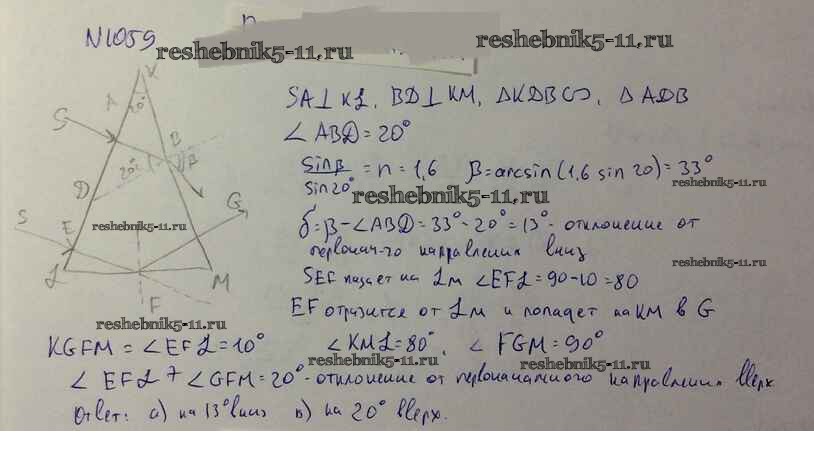 N1059
reshebnik5-11.ru
reshebnik5-11.ru
K
A
20°
S
B
β
20°
D
G
S
E
L
M
F
reshebnik5-11.ru
SA⊥KL, BD⊥KM, ΔKDB∽ ΔADB
∠ABD=20°
sinβ/sin20° = n = 1,6 β=arcsin(1,6 sin 20)=33°
reshebnik5-11.ru
reshebnik5-11.ru
δ=β-∠ABD=33°-20°=13°- отклонение от
первонач-го направления вниз
reshebnik5-11.ru
SEF падает на LM ∠EFL=90-10=80
EF отразится от LM и попадет на KM в G
reshebnik5-11.ru
KGFM = ∠EFL=10° ∠KML=80°, ∠FGM=90°
reshebnik5-11.ru
reshebnik5-11.ru
∠EFL + ∠GFM=20°- отклонение от первоначального направления вверх
Ответ: а) на 13° вниз в) на 20° вверх.